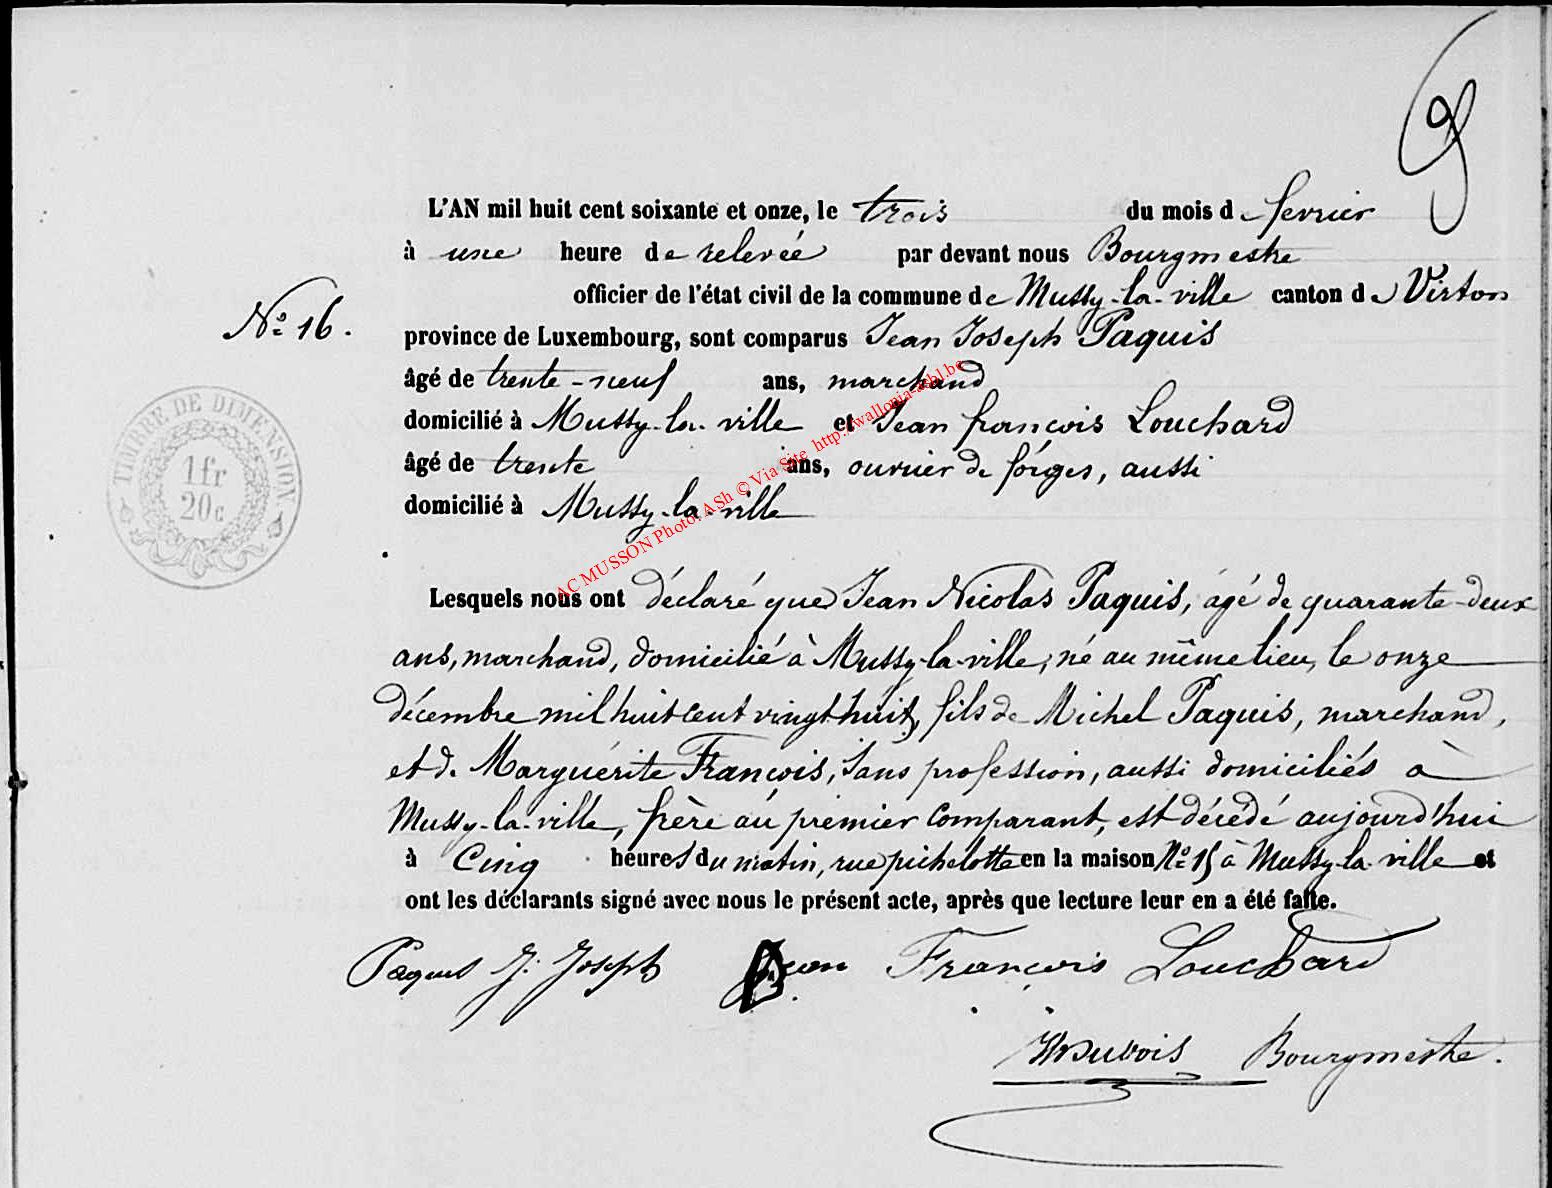 L'AN mil huit cent soixante et onze, le trois du mois de fevrier
à une heure de relevée par devant nous Bourgmestre
officier de l'état civil de la commune de Mussy-la-ville canton de Virton
No 16.
province de Luxembourg, sont comparus Jean Joseph Paquis
âgé de trente-neuf ans, marchand
domicilié à Mussy-la-ville et Jean françois Louchard
âgé de trente ans, ouvrier de forges, aussi
domicilié à Mussy-la-ville
TIMBRE DE DIMENSION
1 fr
20 c
AC MUSSON Photo: ASh © Via Site http://wallonia-asbl.be
Lesquels nous ont déclaré que Jean Nicolas Paquis, agé de quarante-deux
ans, marchand, domicilié à Mussy-la-ville, né au même lieu, le onze
décembre mil huit cent vingt huit, fils de Michel Paquis, marchand,
et de Marguérite François, sans profession, aussi domiciliés à
Mussy-la-ville, frère au premier comparant, est décédé aujourd'hui
à Cinq heures du matin, rue pichelotte en la maison No 15 à Mussy-la-ville et
ont les déclarants signé avec nous le présent acte, après que lecture leur en a été faite.
Paquis J. Joseph Jean François Louchard
Dubois Bourgmestre.